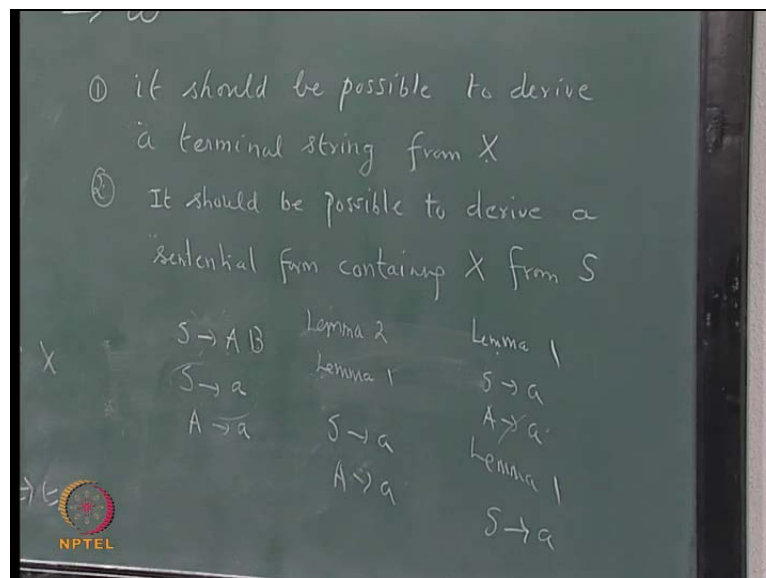 → w
① it should be possible to derive
a terminal string from X
② It should be possible to derive a
sentential form containing X from S
X
S → A B
S → a
A → a
Lemma 2
Lemma 1
S → a
A → a
Lemma 1
S → a
A → a
Lemma 1
S → a
NPTEL